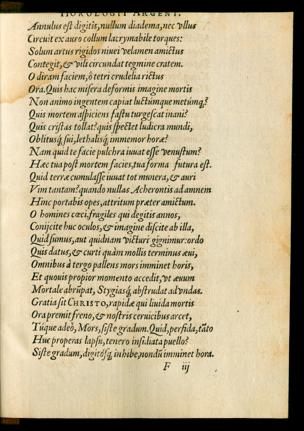 HOROLOGII ARGENT.
Annulus est digitis, nullum diadema, nec vllus
Circuit ex auro collum lacrymabile torques:
Solum artus rigidos niuei velamen amictus
Contegit, & vili circundat tegmine cratem.
O diram faciem, ô tetri crudelia rictus
Ora. Quis hac misera deformis imagine mortis
Non animo ingentem capiat luctúmque metúmq;?
Quis mortem aspiciens fastu turgescat inani?
Quis cristas tollat? quis spectet ludicra mundi,
Oblitusq́; sui, lethalisq́; immemor horæ?
Nam quid te facie pulchra iuuat esse venustum?
Hæc tua post mortem facies, tua forma futura est.
Quid terræ cumulasse iuuat tot munera, & auri
Vim tantam? quando nullas Acherontis ad amnem
Hinc portabis opes, attritum præter amictum.
O homines cæci, fragiles qui degitis annos,
Conijcite huc oculos, & imagine discite ab illa,
Quid sumus, aut quidnam victuri gignimur: ordo
Quis datus, & curti quàm mollis terminus æui,
Omnibus à tergo pallens mors imminet horis,
Et quouis propior momento accedit, vt æuum
Mortale abrūpat, Stygiasq́; abstrudat ad vndas.
Gratia sit CHRISTO, rapidæ qui liuida mortis
Ora premit freno, & nostris ceruicibus arcet,
Túque adeò, Mors, siste gradum. Quid, perfida, tāto
Huc properas lapsu, tenero insidiata puello?
Siste gradum, digitósq́; inhibe, nondū imminet hora.
F iij